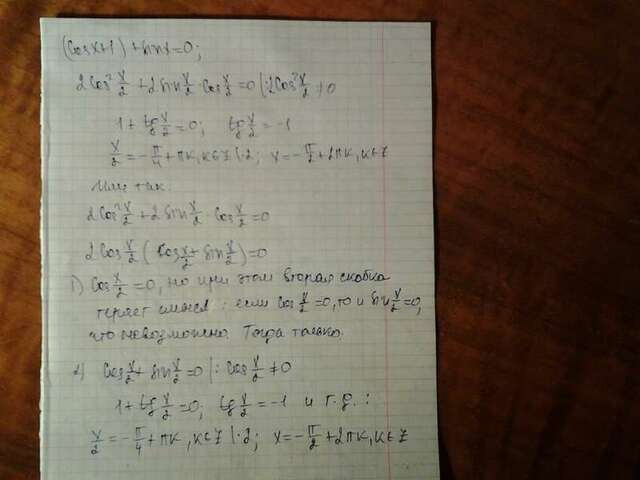 (cosx+1)+sinx=0;
2cos²x/2+2sinx/2·cosx/2=0|:2cos²x/2≠0
1+tgx/2=0; tgx/2=-1
x/2=-π/4+πk,k∈Z|·2; x=-π/2+2πk,k∈Z
Или так:
2cos²x/2+2sinx/2·cosx/2=0
2cosx/2(cosx/2+sinx/2)=0
1) cosx/2=0, но при этом вторая скобка
теряет смысл: если cosx/2=0,то и sinx/2=0,
что невозможно. Тогда только.
2) cosx/2+sinx/2=0|:cosx/2≠0
1+tgx/2=0; tgx/2=-1 и т.д.:
x/2=-π/4+πk,k∈Z|·2; x=-π/2+2πk,k∈Z